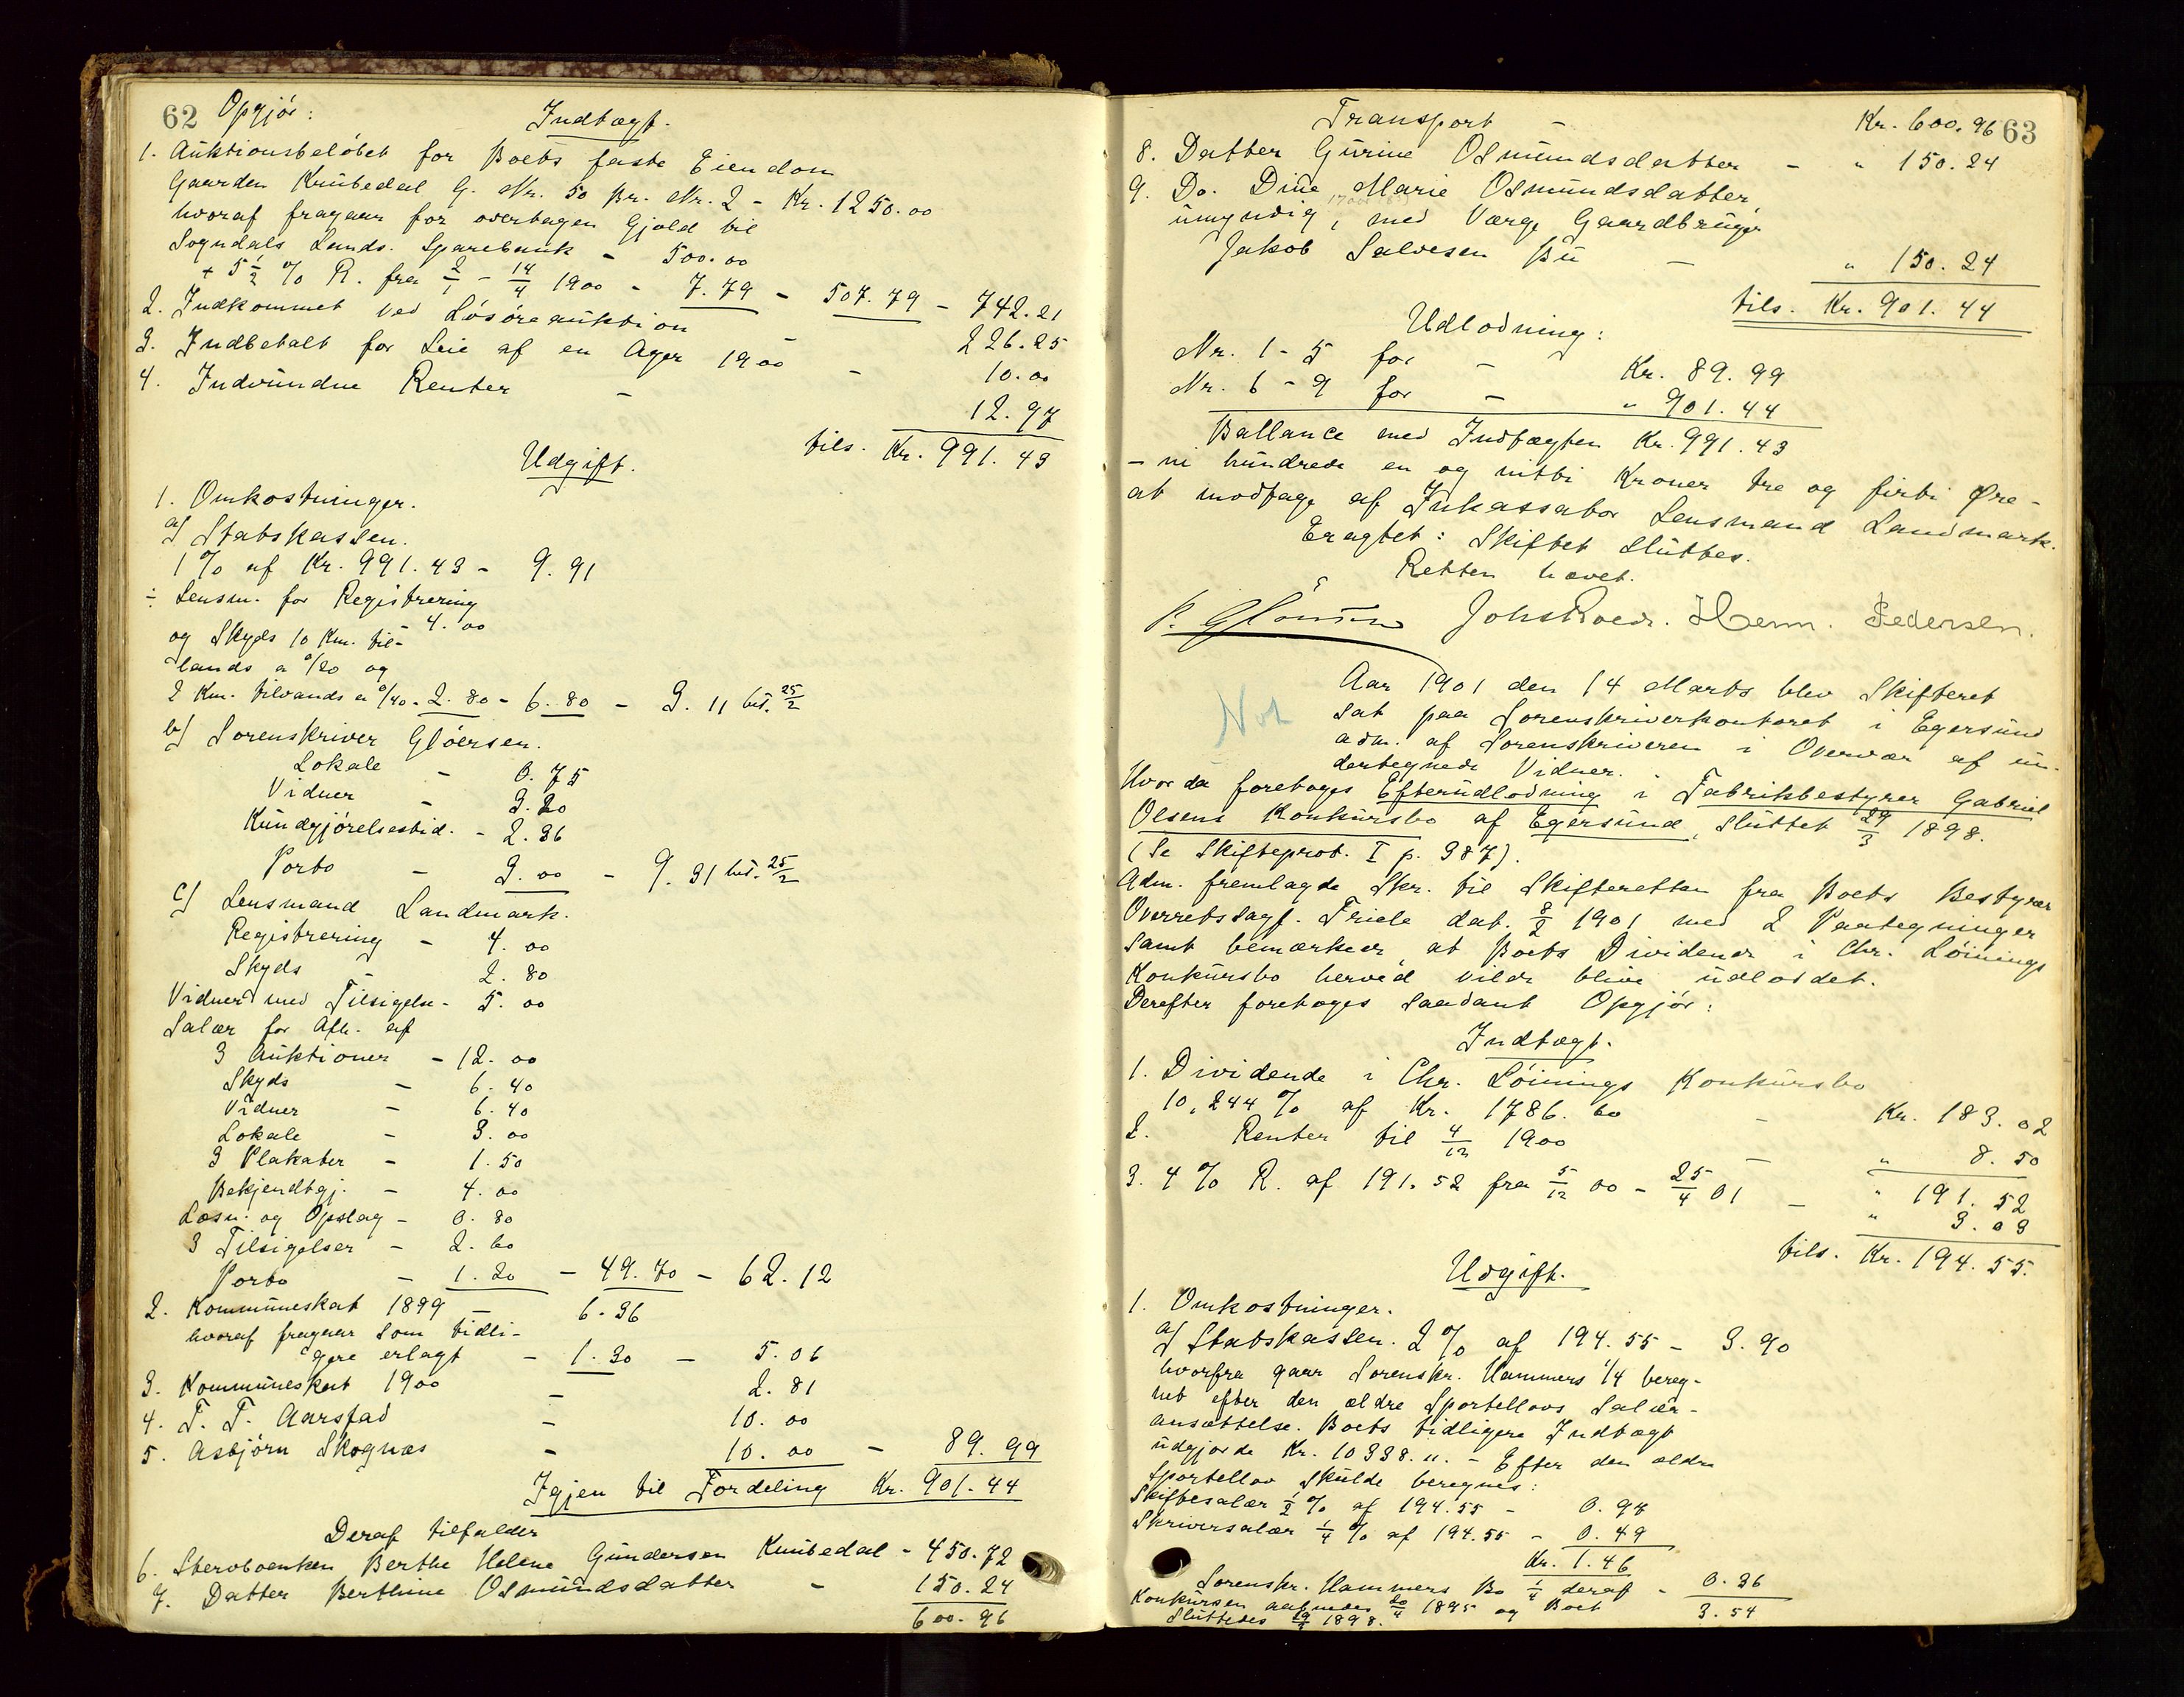 62 Opgjør:
Indtægt.
1. Auktionsbeløbet for Boets faste Eiendom
Gaarden Krubedal G. Nr. 50 Br. Nr. 2 - Kr. 1250.00
hvoraf fragaar for overtagen Gjæld til
Sogndals Lands. Sparebank - 500.00
+ 5 1/2 % R. fra 2/1 - 14/4 1900 - 7.79 - 507.79 - 742.21
2. Indkommet ved Løsøreauktion - 226.25
3. Indbetalt for Leie af en Ager 1900 - 10.00
4. Indvundne Renter - 12.97
tils. Kr. 991.43
Udgift.
1. Omkostninger.
a) Statskassen.
1 % af Kr. 991.43 - 9.91
÷ Lensm. for Registrering
- 4.00
og Skyds 10 Km. til-
lands a 0/20 og
2 Km. tilvands a 0/40 - 2.80 - 6.80 - 3.11 bet. 25/2
b) Sorenskriver Gløersen.
Lokale - 0.75
Vidner - 3.20
Kundgjørelsestid. - 2.36
Porto - 3.00 - 9.31 bet. 25/2
c) Lensmand Landmark.
Registrering - 4.00
Skyds - 2.80
Vidner med Tilsigelse - 5.00
Salær for Afh. af
3 Auktioner - 12.00
Skyds - 6.40
Vidner - 6.40
Lokale - 3.00
3 Plakater - 1.50
Bekjendtgj. - 4.00
Læsn. og Opslag - 0.80
3 Tilsigelser - 2.60
Porto - 1.20 - 49.70 - 62.12
2. Kommuneskat 1899 - 6.36
hvoraf fragaar som tidli-
gere erlagt - 1.30 - 5.06
3. Kommuneskat 1900 - 2.81
4. T. T. Aarstad - 10.00
5. Asbjørn Skognæs - 10.00 - 89.99
Igjen til Fordeling Kr. 901.44
Deraf tilfalder
6. Stervboenken Berthe Helene Gundersen Krubedal - 450.72
7. Datter Berthine Osmundsdatter - 150.24
600.96
Transport - Kr. 600.96 63
8. Datter Gurine Osmundsdatter - " 150.24
9. Do. Dine Marie Osmundsdatter,
umyndig, med Værge Gaardbruger
Jakob Salvesen Bu - " 150.24
tils. Kr. 901.44
Udlodning:
Nr. 1 - 5 for - Kr. 89.99
Nr. 6 - 9 for - " 901.44
Ballance med Indtægten Kr. 991.43
- ni hundrede en og nitti Kroner tre og firti Øre -
at modtage af Inkassator Lensmand Landmark.
Eragtet: Skiftet sluttes.
Retten hævet.
Gløersen Johs Roed. Herm. Pedersen.
Not
Aar 1901 den 14 Marts blev Skifteret
sat paa Sorenskriverkontoret i Egersund
adm. af Sorenskriveren i Overvær af un-
dertegnede Vidner.
Hvor da foretoges Efterudlodning i Fabrikbestyrer Gabriel
Olsens Konkursbo af Egersund, sluttet 29/3 1898.
(Se Skifteprot. I p. 387).
Adm. fremlagde Skr. til Skifteretten fra Boets Bestyrer
Overretssagf. Friele dat. 8/2 1901 med 2 Paategninger
samt bemærker, at Boets Dividende i Chr. Løinings
Konkursbo herved vilde blive udloddet.
Derefter foretoges saadant Opgjør:
Indtægt.
1. Dividende i Chr. Løinings Konkursbo
10,244 % af Kr. 1786.60 - Kr. 183.02
2. Renter til 4/12 1900 - " 8.50
" 191.52
3. 4 % R. af 191.52 fra 5/12 00 - 25/4 01 - " 3.03
tils. Kr. 194.55.
Udgift.
1. Omkostninger.
a) Statskassen. 2 % af 194.55 - 3.90
hvorfra gaar Sorenskr. Hammers 1/4 bereg-
net efter den ældre Sportellovs Salær-
ansættelse. Boets tidligere Indtægt
udgjorde Kr. 10338.11. - Efter den ældre
Sportellov skulde beregnes:
Skiftesalær 1/2 % af 194.55 - 0.97
Skriversalær 1/4 % af 194.55 - 0.49
Kr. 1.46
Sorenskr. Hammers Bo 1/4 deraf - 0.36
Konkursen aabnedes 20/4 1895 og Boet 3.54
sluttedes 29/3 1898.